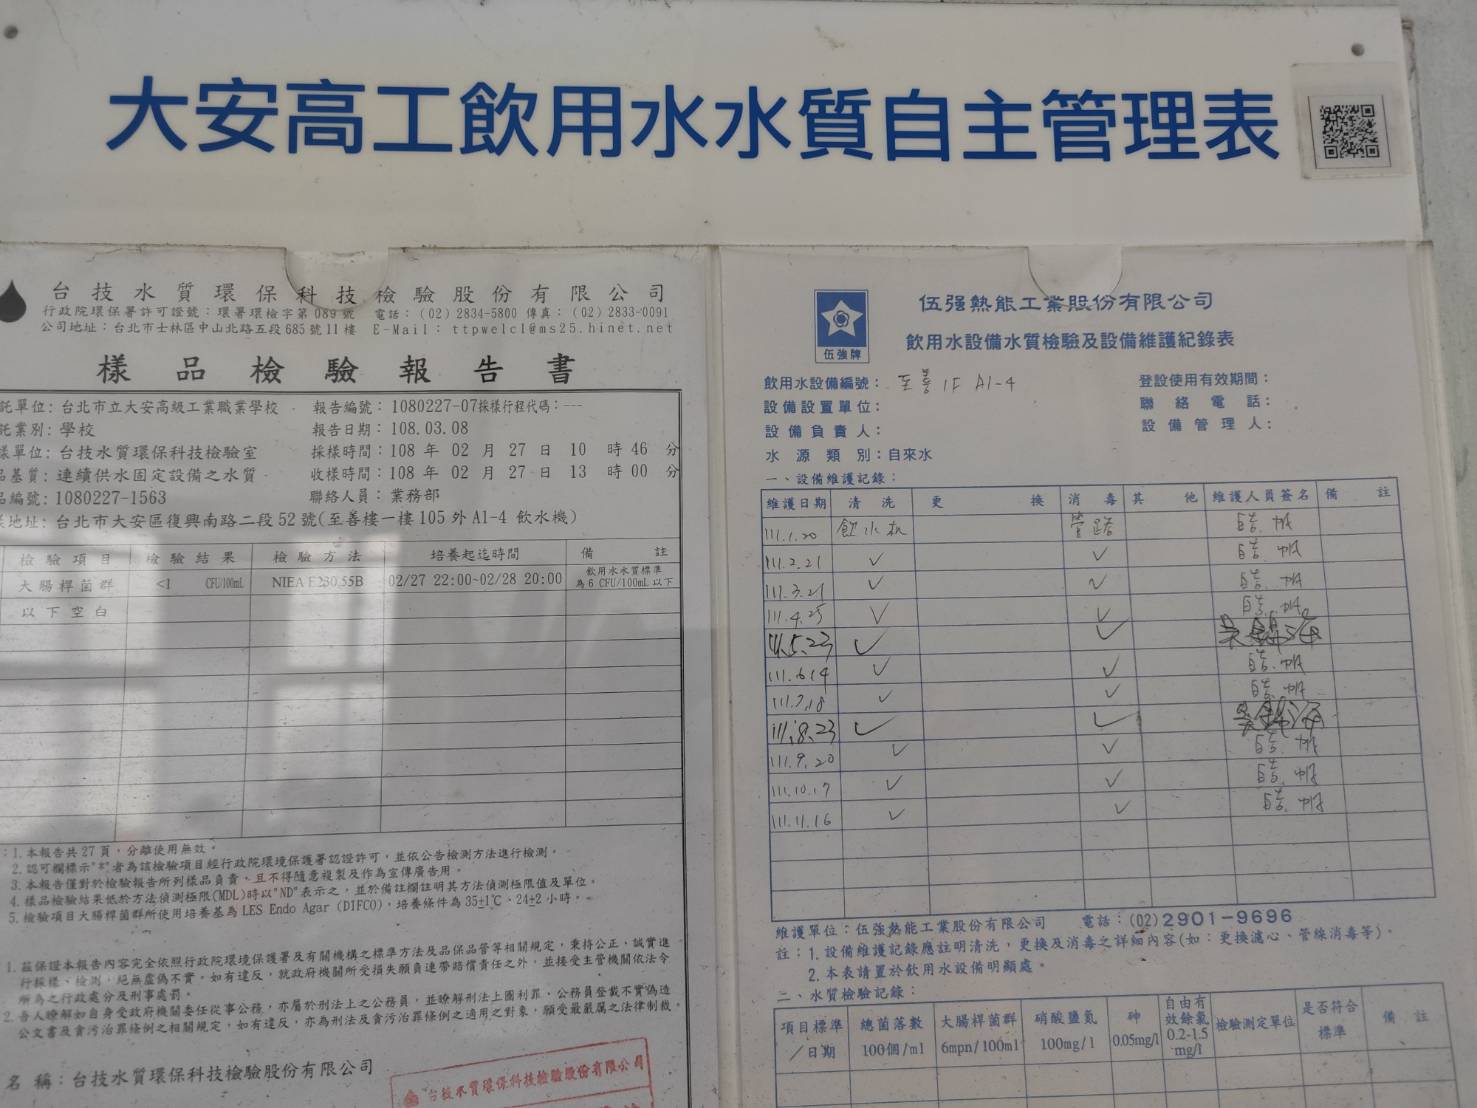 大安高工飲用水水質自主管理表
台技水質環保科技檢驗股份有限公司
行政院環保署許可證號：環署環檢字第089號 電話：(02) 2834-5800 傳真：(02) 2833-0091
公司地址：台北市士林區中山北路五段685號11樓 E-Mail: ttpwelcl@ms25.hinet.net
樣品檢驗報告書
託單位：台北市立大安高級工業職業學校 報告編號：1080227-07採樣行程代碼：---
託業別：學校 報告日期：108.03.08
樣單位：台技水質環保科技檢驗室 採樣時間：108 年 02 月 27 日 10 時 46 分
品基質：連續供水固定設備之水質 收樣時間：108 年 02 月 27 日 13 時 00 分
品編號：1080227-1563 聯絡人員：業務部
地址：台北市大安區復興南路二段52號(至善樓一樓105外A1-4 飲水機)
檢驗項目 檢驗結果 檢驗方法 培養起迄時間 備註
大腸桿菌群 <1 CFU/100mL NIEA E230.55B 02/27 22:00~02/28 20:00 飲用水水質標準為6 CFU/100mL以下
以下空白
：1.本報告共27頁，分離使用無效。
2.認可欄標示"*"者為該檢驗項目經行政院環境保護署認證許可，並依公告檢測方法進行檢測。
3.本報告僅對於檢驗報告所列樣品負責，且不得隨意複製及作為宣傳廣告用。
4.樣品檢驗結果低於方法偵測極限(MDL)時以"ND"表示之，並於備註欄註明其方法偵測極限值及單位。
5.檢驗項目大腸桿菌群所使用培養基為LES Endo Agar (DIFCO)，培養條件為35±1℃、24±2小時。
1.茲保證本報告內容完全依照行政院環境保護署及有關機構之標準方法及品保品管等相關規定，秉持公正、誠實進
行採樣、檢測，絕無虛偽不實，如有違反，就政府機關所受損失願負連帶賠償責任之外，並接受主管機關依法令
所為之行政處分及刑事處罰。
2.吾人瞭解如自身受政府機關委任從事公務，亦屬於刑法上之公務員，並瞭解刑法上圖利罪、公務員登載不實偽造
公文書及貪污治罪條例之相關規定，如有違反，亦為刑法及貪污治罪條例之適用之對象，願受最嚴厲之法律制裁。
名稱：台技水質環保科技檢驗股份有限公司
台技水質環保科技檢驗股份有限公司
伍強牌
伍强熱能工業股份有限公司
飲用水設備水質檢驗及設備維護紀錄表
飲用水設備編號：至善 1F A1-4 登設使用有效期間：
設備設置單位： 聯絡電話：
設備負責人： 設備管理人：
水源類別：自來水
一、設備維護記錄：
維護日期 清洗 更換 消毒 其他 維護人員簽名 備註
111.1.20 飲水机 管路
111.2.21 ✓ ✓
111.3.21 ✓ ✓
111.4.25 ✓ ✓
111.5.23 ✓ ✓
111.6.14 ✓ ✓
111.7.18 ✓ ✓
111.8.23 ✓ ✓
111.9.20 ✓ ✓
111.10.17 ✓ ✓
111.11.16 ✓ ✓
維護單位：伍強熱能工業股份有限公司 電話：(02)2901-9696
註：1.設備維護記錄應註明清洗，更換及消毒之詳細內容(如：更換濾心、管線消毒等)。
2.本表請置於飲用水設備明顯處。
二、水質檢驗記錄：
項目標準／日期 總菌落數100個/ml 大腸桿菌群6mpn/100ml 硝酸鹽氮100mg/l 砷0.05mg/l 自由有效餘氯0.2-1.5mg/l 檢驗測定單位 是否符合標準 備註